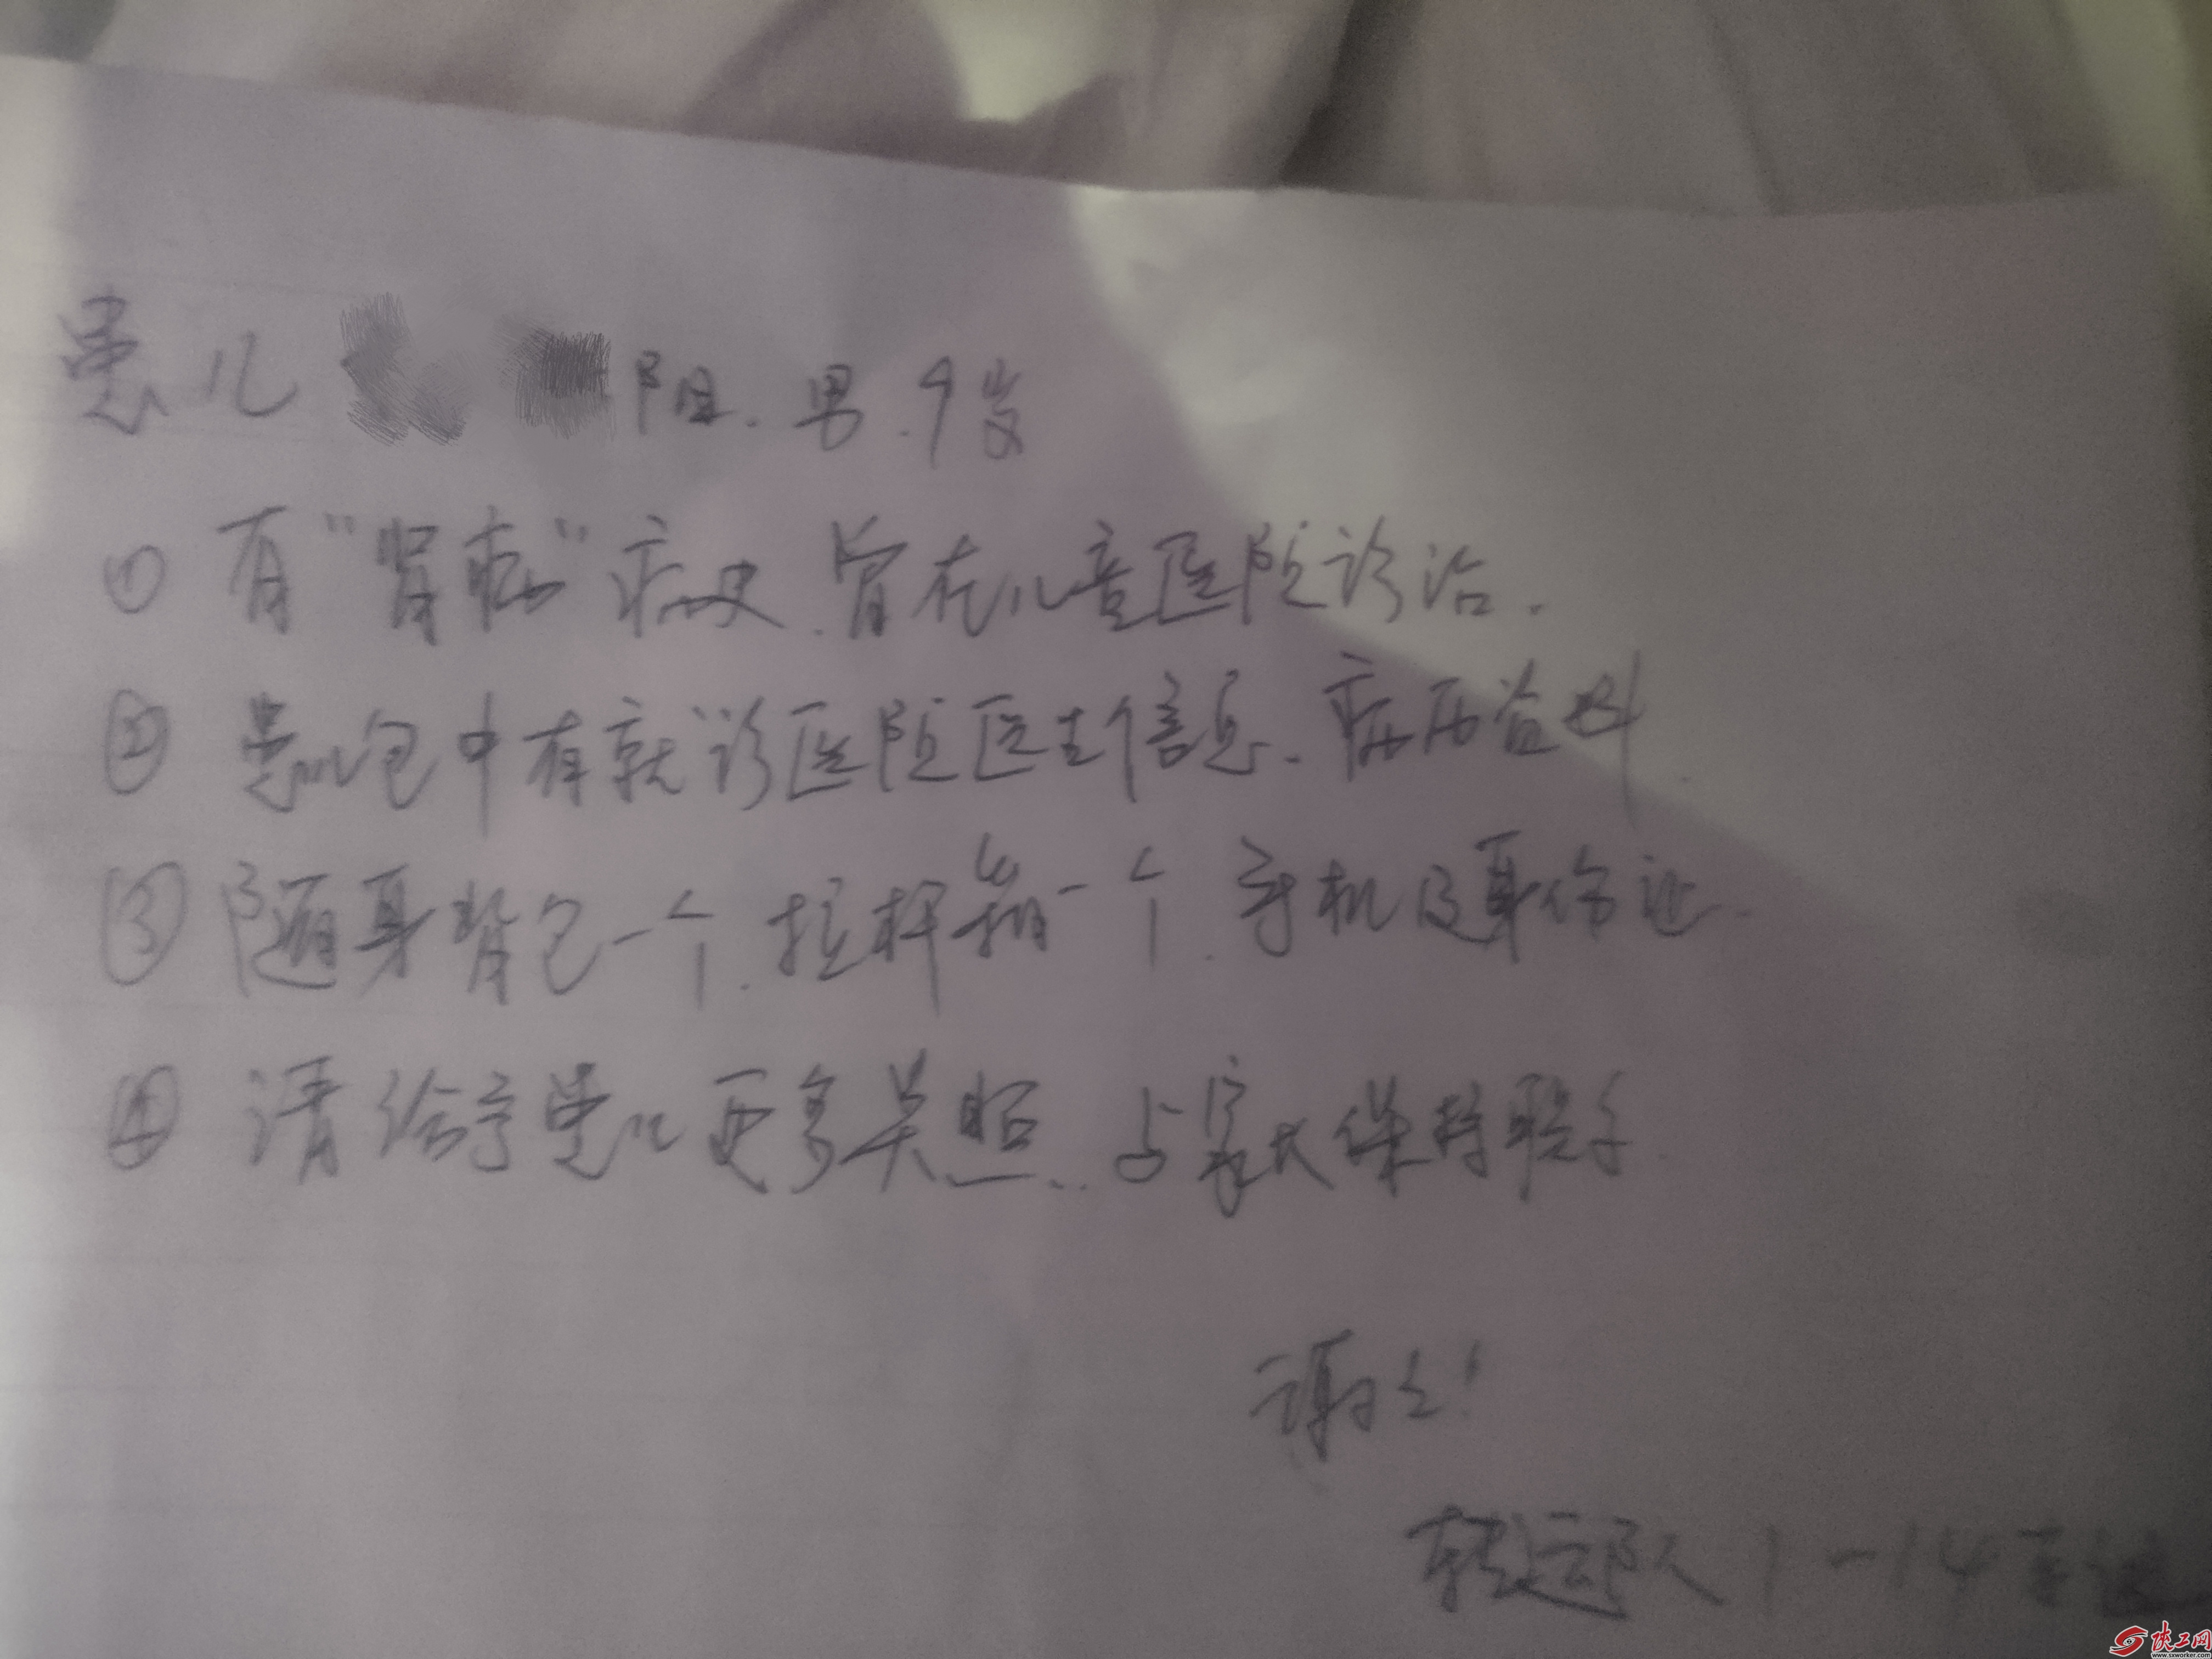 患儿 阳. 男. 9岁
① 有"肾病"病史. 曾在儿童医院诊治.
② 患儿包中有就诊医院医生信息. 病历资料.
③ 随身背包一个. 拉杆箱一个. 手机及身份证.
④ 请给予患儿更多关照. 与家长保持联系.
谢谢!
转运队 1-14
陕工网
www.sxworker.com